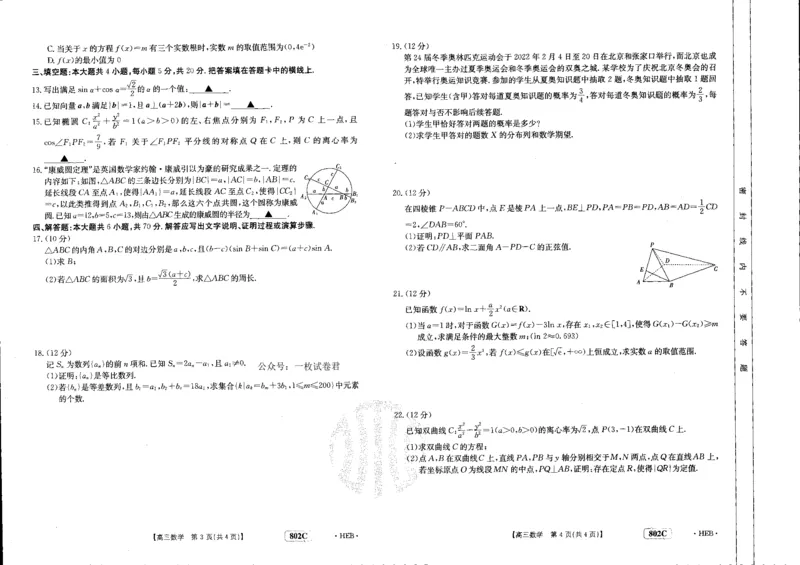 C. 当关于 x 的方程 f(x)=m 有三个实数根时,实数 m 的取值范围为(0,4e⁻²)
D. f(x)的最小值为 0
三、填空题:本大题共 4 小题,每小题 5 分,共 20 分.把答案填在答题卡中的横线上.
13. 写出满足 sin α+cos α=√2/2 的 α 的一个值: ▲ .
14. 已知向量 a,b 满足|b|=1,且 a⊥(a+2b),则|a+b|= ▲ .
15. 已知椭圆 C: x²/a²+y²/b²=1(a>b>0)的左、右焦点分别为 F₁,F₂,P 为 C 上一点,且
cos∠F₁PF₂=7/9,若 F₁ 关于∠F₁PF₂ 平分线的对称点 Q 在 C 上,则 C 的离心率为
▲ .
16. “康威圆定理”是英国数学家约翰・康威引以为豪的研究成果之一.定理的
内容如下:如图,△ABC 的三条边长分别为|BC|=a,|AC|=b,|AB|=c.
延长线段 CA 至点 A₁,使得|AA₁|=a,延长线段 AC 至点 C₂,使得|CC₂|
=c,以此类推得到点 A₂,B₁,C₁,B₂,那么这六个点共圆,这个圆称为康威
圆.已知 a=12,b=5,c=13,则由△ABC 生成的康威圆的半径为 ▲ .
四、解答题:本大题共 6 小题,共 70 分.解答应写出文字说明、证明过程或演算步骤.
17. (10 分)
△ABC 的内角 A,B,C 的对边分别是 a,b,c,且(b-c)(sin B+sin C)=(a+c)sin A.
(1)求 B;
(2)若△ABC 的面积为√3,且 b=√3(a+c)/2,求△ABC 的周长.
18. (12 分)
记 Sₙ 为数列{aₙ}的前 n 项和.已知 Sₙ=2aₙ-a₁,且 a₁≠0.
公众号:一枚试卷君
(1)证明:{aₙ}是等比数列.
(2)若{bₙ}是等差数列,且 b₁=a₁,b₇+b₅=18a₁,求集合{k|aₖ=bₘ+3b₁,1≤m≤200}中元素
的个数.
【高三数学 第 3 页(共 4 页)】 802C ・HEB・
19. (12 分)
第 24 届冬季奥林匹克运动会于 2022 年 2 月 4 日至 20 日在北京和张家口举行,而北京也成
为全球唯一主办过夏季奥运会和冬季奥运会的双奥之城.某学校为了庆祝北京冬奥会的召
开,特举行奥运知识竞赛.参加的学生从夏奥知识题中抽取 2 题,冬奥知识题中抽取 1 题回
答,已知学生(含甲)答对每道夏奥知识题的概率为3/4,答对每道冬奥知识题的概率为2/3,每
题答对与否不影响后续答题.
(1)学生甲恰好答对两题的概率是多少?
(2)求学生甲答对的题数 X 的分布列和数学期望.
20. (12 分)
在四棱锥 P-ABCD 中,点 E 是棱 PA 上一点,BE⊥PD,PA=PB=PD,AB=AD=1/2CD
=2,∠DAB=60°.
(1)证明:PD⊥平面 PAB.
(2)若 CD∥AB,求二面角 A-PD-C 的正弦值.
P
D
E
C
A
B
21. (12 分)
已知函数 f(x)=ln x+a/2x²(a∈R).
(1)当 a=1 时,对于函数 G(x)=f(x)-3ln x,存在 x₁,x₂∈[1,4],使得 G(x₁)-G(x₂)≥m
成立,求满足条件的最大整数 m;(ln 2≈0.693)
(2)设函数 g(x)=2/3x³,若 f(x)≤g(x)在[√e,+∞)上恒成立,求实数 a 的取值范围.
22. (12 分)
已知双曲线 C: x²/a²-y²/b²=1(a>0,b>0)的离心率为√2,点 P(3,-1)在双曲线 C 上.
(1)求双曲线 C 的方程;
(2)点 A,B 在双曲线 C 上,直线 PA,PB 与 y 轴分别相交于 M,N 两点,点 Q 在直线 AB 上,
若坐标原点 O 为线段 MN 的中点,PQ⊥AB,证明:存在定点 R,使得|QR|为定值.
【高三数学 第 4 页(共 4 页)】 802C ・HEB・
密封线内不要答题